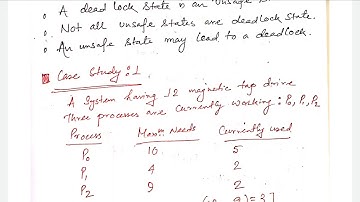 • A dead lock state is an unsafe
• Not all unsafe states are deadlock state.
• An unsafe state may lead to a deadlock.
Case Study: 1.
A System having 12 magnetic tap drive
Three processes are currently working: P0, P1, P2
Process Maxm Needs Currently used
P0 10 5
P1 4 2
P2 9 2
9) = 3